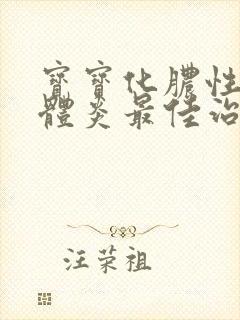 寶寶化膿性
體炎最佳治
汪荣祖